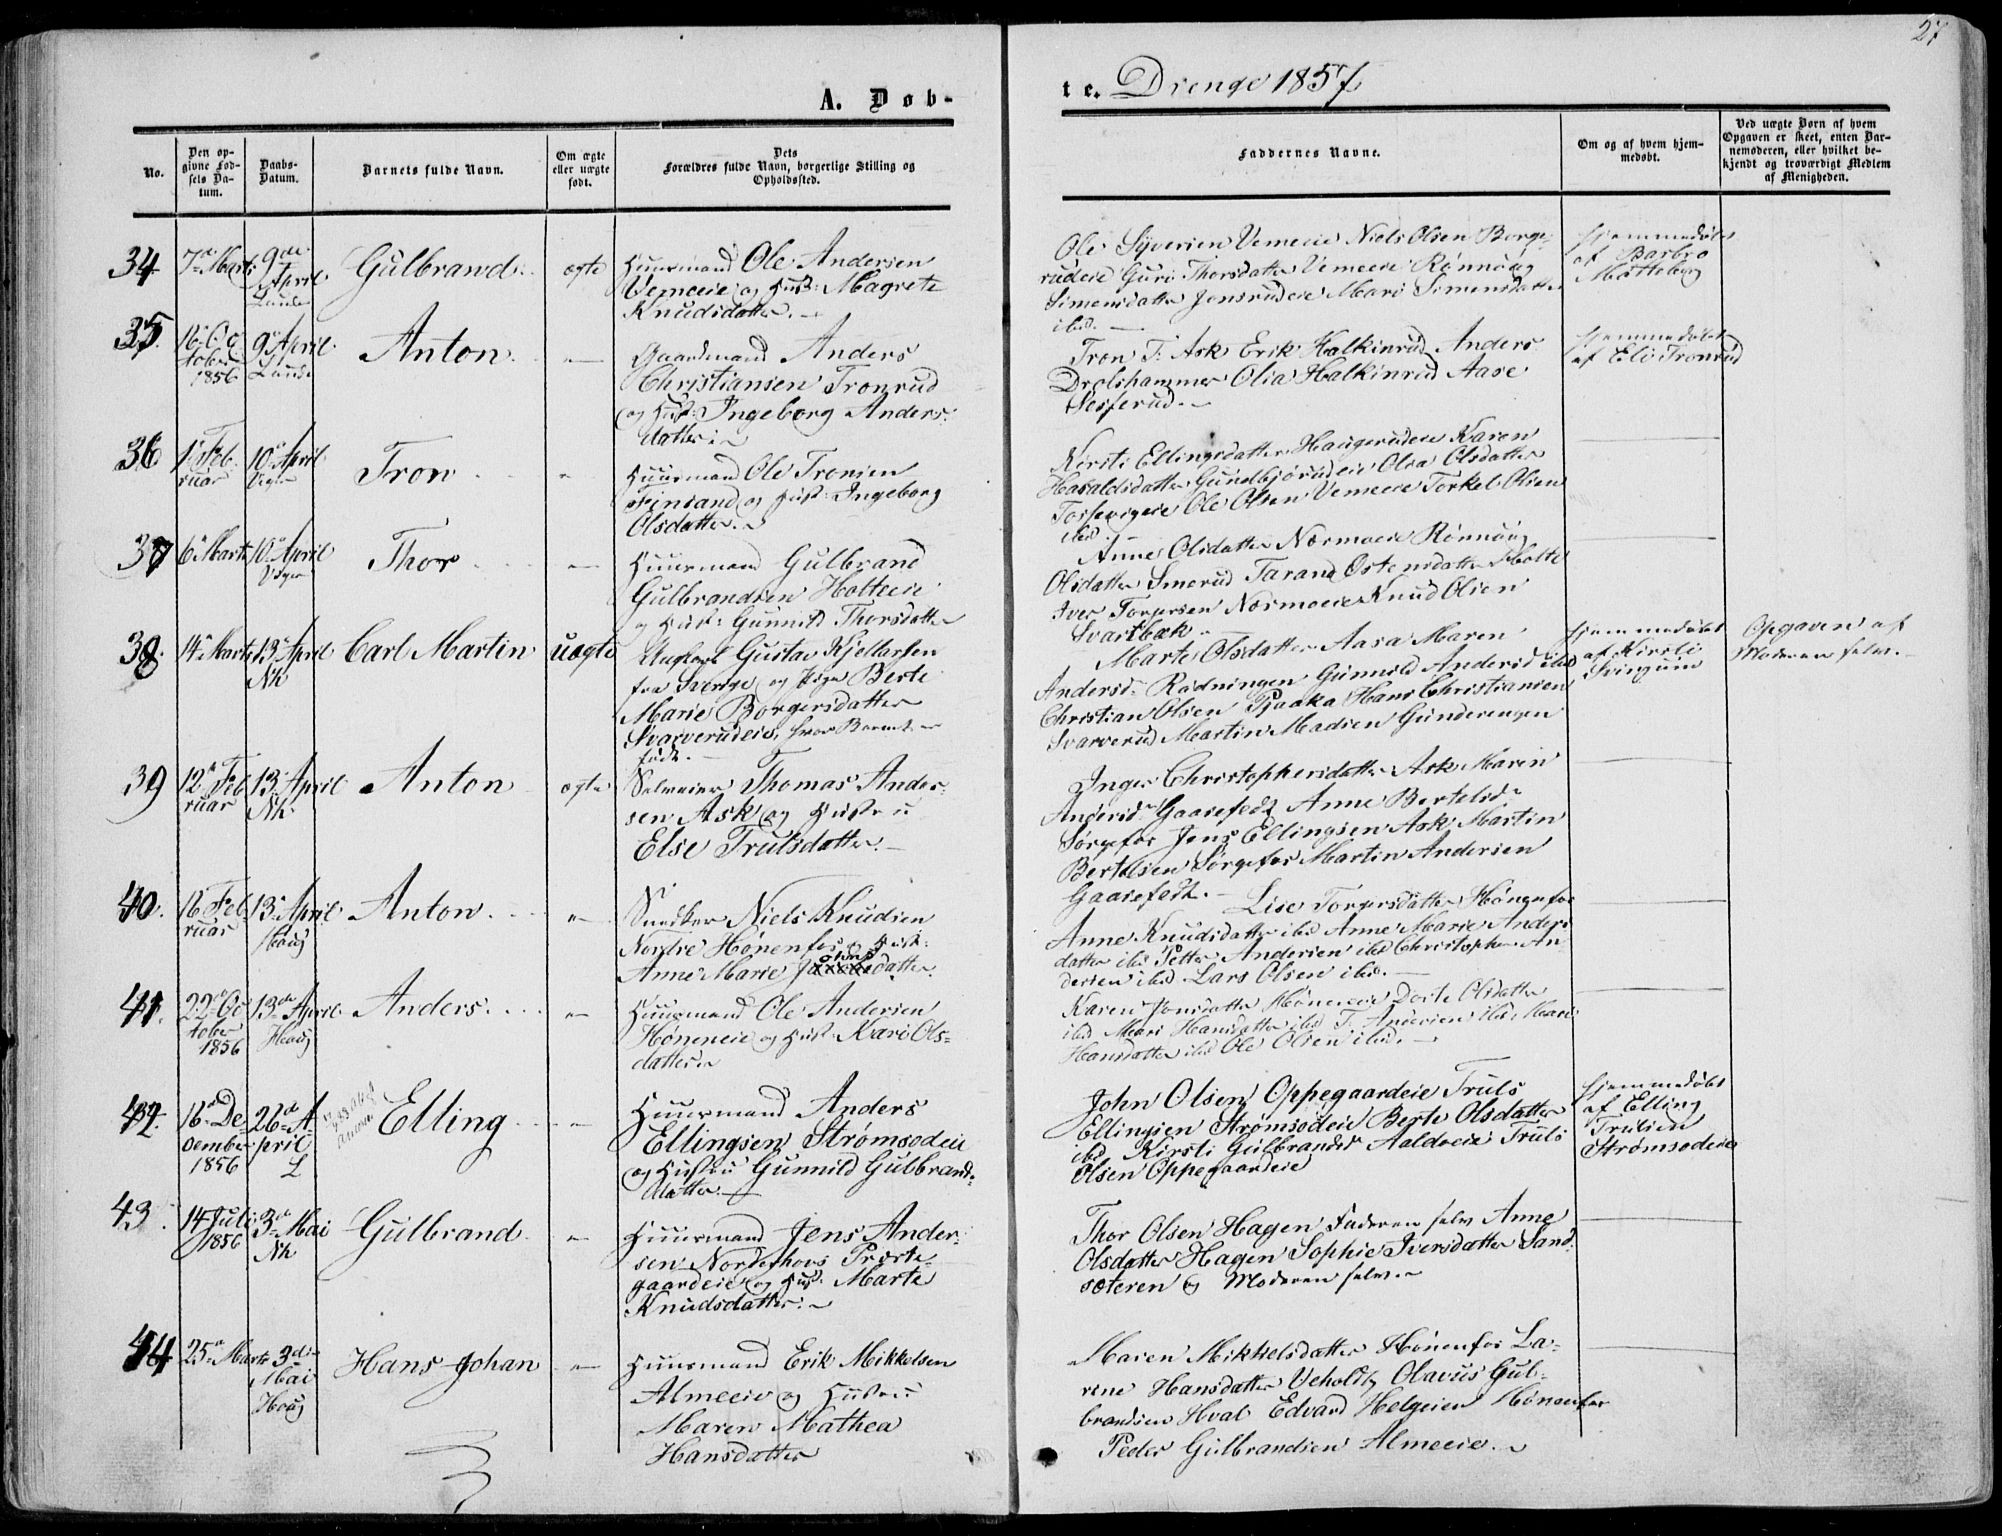 27
A. Døb-
te. Drenge 1857
No.
Den op-
givne Fød-
sels Da-
tum.
Daabs-
Datum.
Barnets fulde Navn.
Om ægte
eller uægte
født.
Dets
Forældres fulde Navn, borgerlige Stilling og
Opholdssted.
Faddernes Navne.
Om og af hvem hjem-
medøbt.
Ved uægte Børn af hvem
Opgaven er skeet, enten Bar-
nemoderen, eller hvilket be-
kjendt og troværdigt Medlem
af Menigheden.
34
7de Marts
9de
April
Lunde
Gulbrand
ægte
Huusmand Ole Andersen
Vemeeie og Hust: Magrete
Knudsdatter.
Ole Syversen Vemeeie Niels Olsen Borge-
rudeie Guri Thorsdatter Vemeeie Rønnoug
Simensdatter Jonsrudeie Mari Simensdatter
ibid.
Hjemmedøbt
af Barbro
Møtteberg
35.
16 Oc
tober
1856
9 April
Lunde
Anton
Gaardmand Anders
Christiansen Tronrud
og Hust: Ingeborg Anders-
datter
Tron T: Ask Erik Halkinrud Anders
Drolshammer Olia Halkinrud Aase
Sesserud.
Hjemmedøbt
af Eli Tronrud
36
1 Feb
ruar
10 April
Viger
Tron
Huusmand Ole Tronsen
Finsand og Hust: Ingeborg
Olsdatter.
Kirsti Ellingsdatter Haugerudeie Karen
Haraldsdatter Gunbjørrudeie Olea Olsdatter
Torsevigeie Ole Olsen Vemeeie Torkel Olsen
ibid
37
6 Marts
10 April
Viger
Thor
Huusmand Gulbrand
Gulbrandsen Holteeie
og Hust: Gunnild Thorsdatter
Anne Olsdatter Nærmoeie Rønnoug
Olsdatter Smerud Tarand Ostensdatter Holte
Iver Torgersen Nærmoeie Knud Olsen
Svartbæk
38.
14 Marts
13 April
Nh
Carl Martin
uægte
Ungkarl Gustav Kjellarsen
fra Sverige og Pige Berte
Marie Borgersdatter
Svarverudeie, hvor Barnet
født.
Marte Olsdatter Aasa Maren
Andersd: Rødningen Gunnild Andersd ibid
Christian Olsen Pjaaka Hans Christiansen
Svarverud Martin Madsen Gunderengen
Hjemmedøbt
af Kirsti
Svingum
Opgaven af
Moderen selv.
39
12 Feb
ruar
13 April
Nh.
Anton
ægte
Selveier Thomas Ander-
sen Ask og Hustru
Else Trulsdatter.
Inger Christophersdatter Ask Maren
Andersd: Gaasefedt Anne Bertelsd:
Sørgefos Jens Ellingsen Ask Martin
Bertelsen Sørgefos Martin Andersen
Gaasefedt.
40.
16 Feb
ruar
13 April
Haug
Anton
Snedker Niels Knudsen
Nordre Hønenfos og Hust:
Anne Marie datter
Lise Torgersdatter Hønenfos
Anne Knudsdatter ibid Anne Marie Anders
datter ibid Petter Andersen ibid Christopher An
dersen ibid Lars Olsen ibid.
41.
22 Oc
tober
1856
13de April
Haug
Anders
Huusmand Ole Andersen
Høneneie og Hust: Kari Ols-
datter
Karen Jonsdatter Høneneie Dorte Olsdatter
ibid Mari Hansdatter ibid T. Andersen ibid Mari
Hansdatter ibid Ole Olsen ibid.
42.
16 De
cember
1856
26de A
pril
L
Elling
Huusmand Anders
Ellingsen Strømsodeie
og Hustru Gunnild Gulbrand-
datter
John Olsen Oppegaardeie Truls
Ellingsen Strømsodeie Berte Olsdatter
ibid Kirsti Gulbrandsd Aaldveie Truls
Olsen Oppegaardeie
Hjemmedøbt
af Elling
Trulsen
Strømsodeie
43.
14 Juli
1856
3de Mai
Nh
Gulbrand
Huusmand Jens Ander-
sen Norderhovs Præste-
gaardeie og Hust: Marte
Knudsdatter
Thor Olsen Hagen Faderen selv Anne
Olsdatter Hagen Sophie Iversdatter Sand-
sæteren og Moderen selv.
44
25 Marts
3de
Mai
Haug
Hans Johan
Huusmand Erik Mikkelsen
Almeeie og Hustru
Maren Mathea
Hansdatter
Maren Mikkelsdatter Hønenfos La-
rine Hansdatter Veholdt Olavus Gul-
brandsen Hval Edvard Helgesen Hønenfos
Peder Gulbrandsen Almeeie.